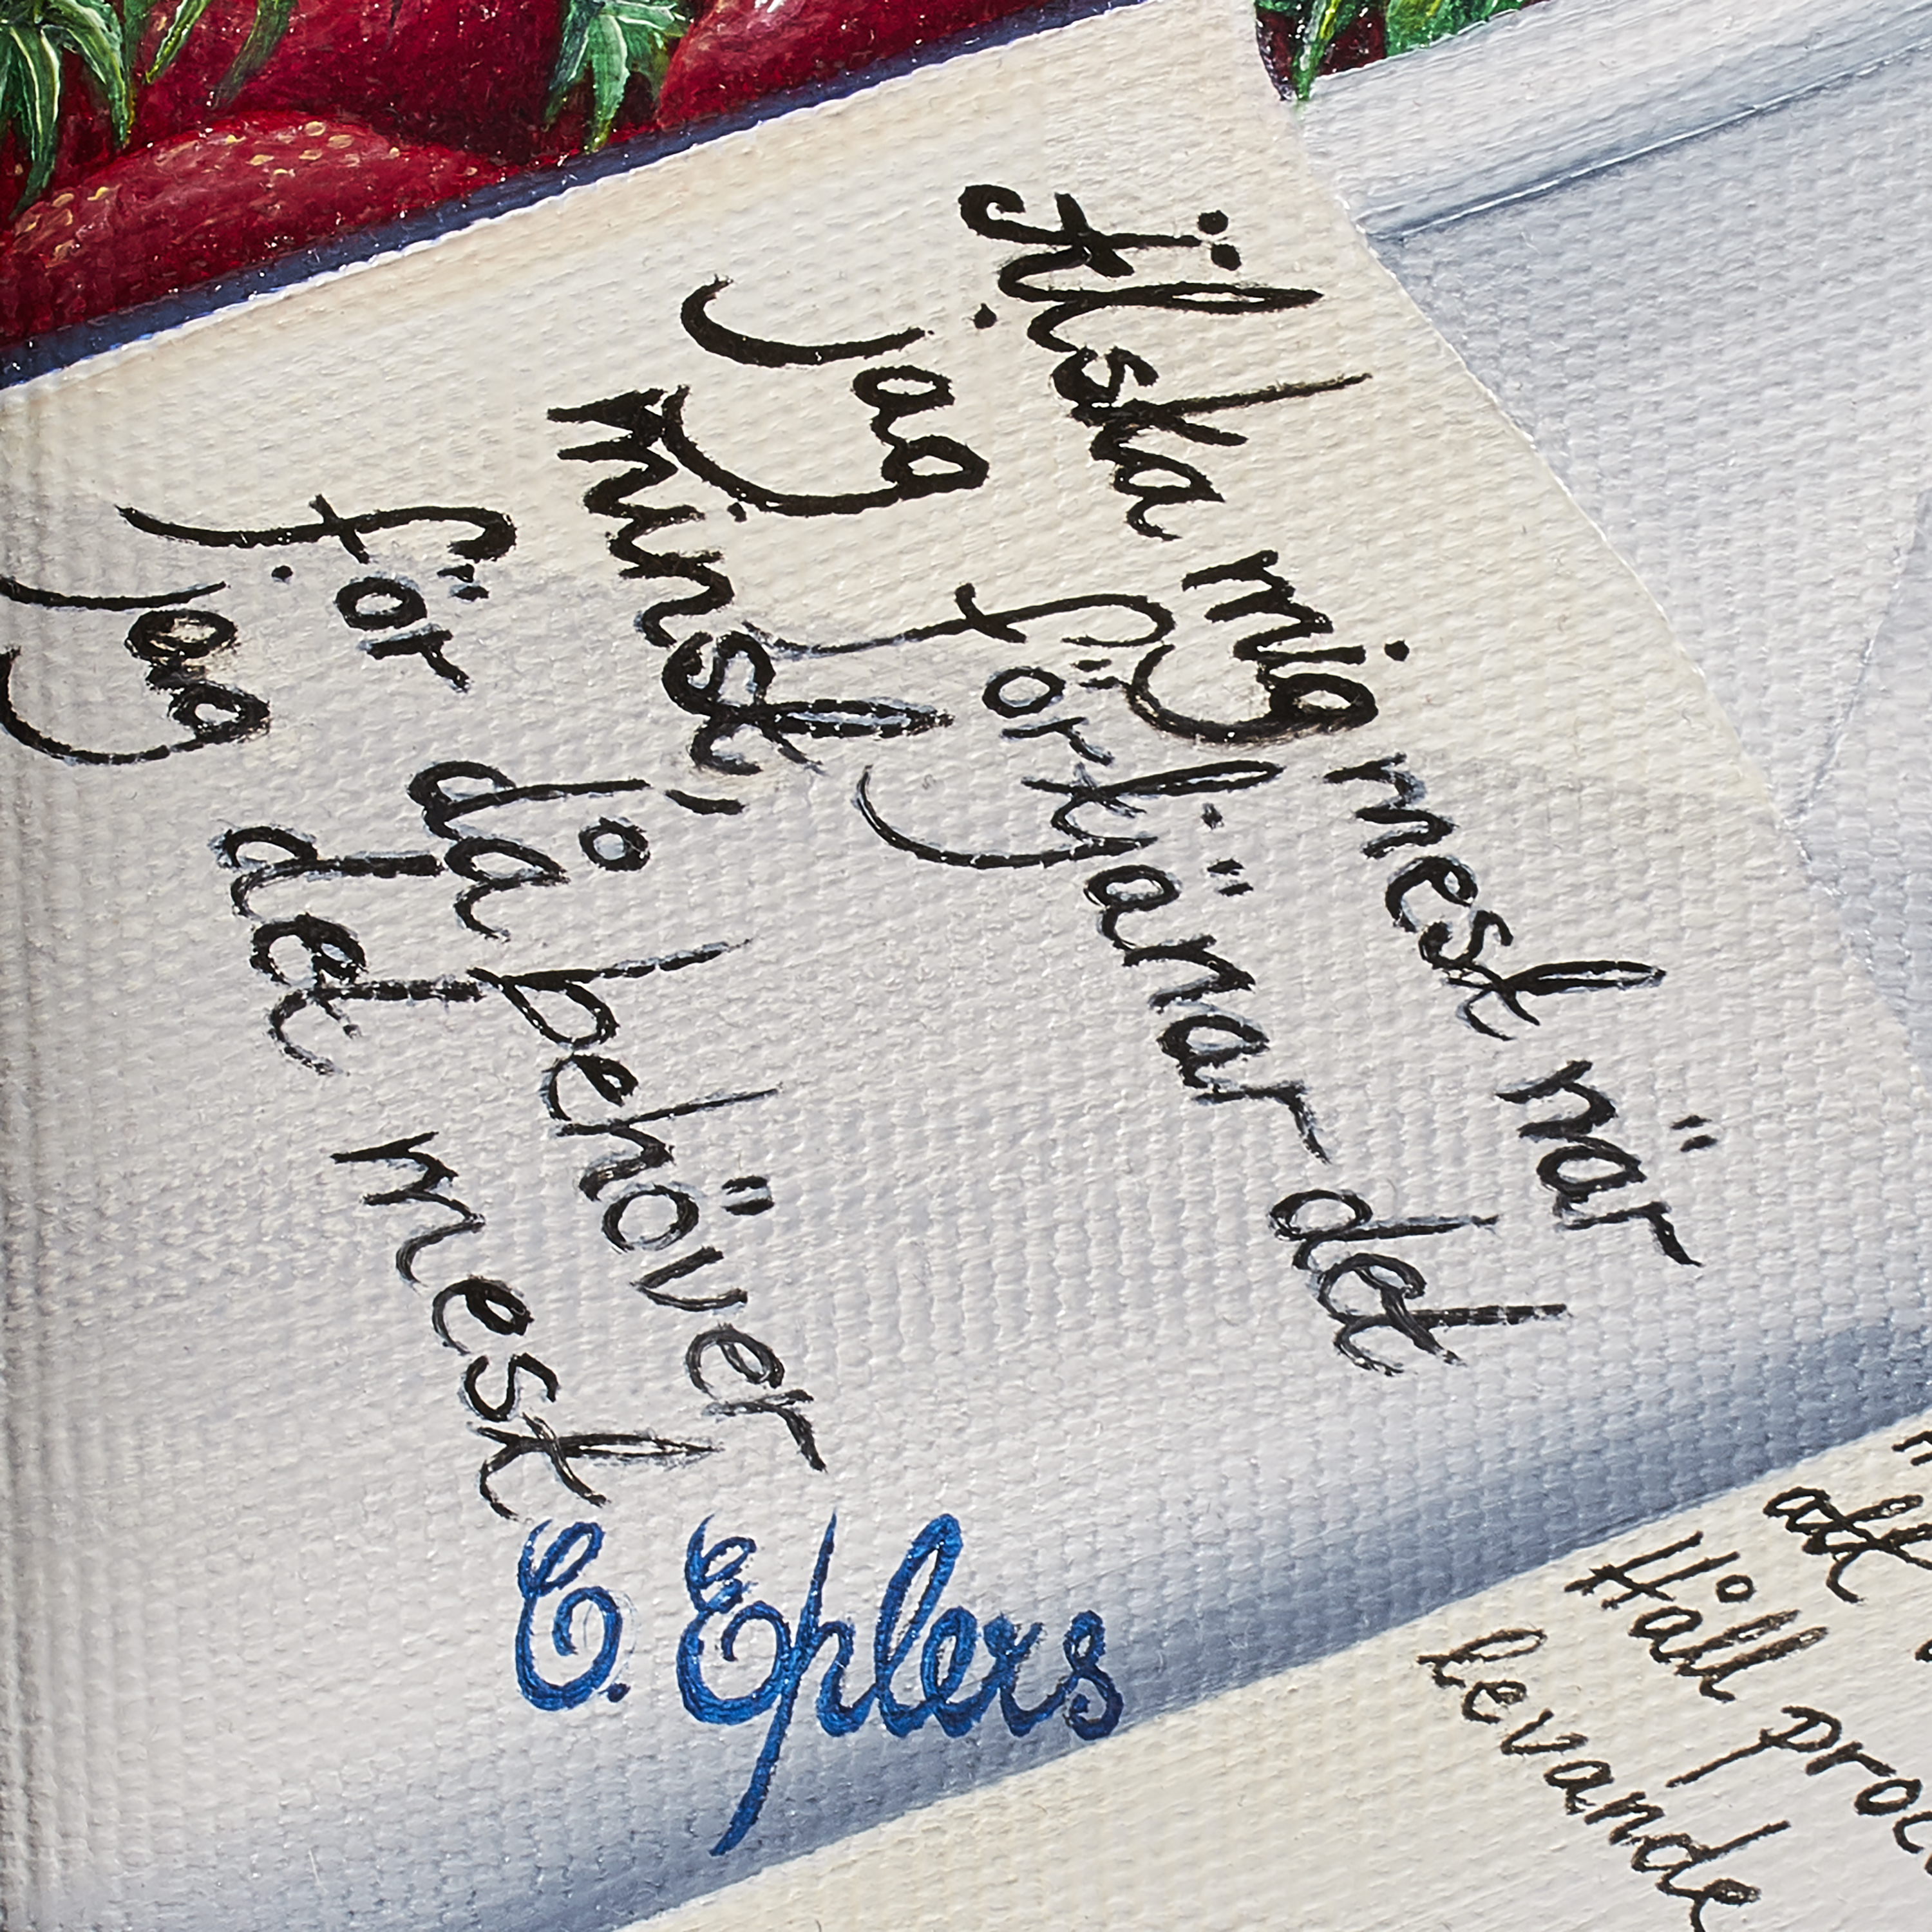 Älska mig mest när
jag förtjänar det
minst,
för då behöver
jag det mest
C. Eplers
att
Håll
levande